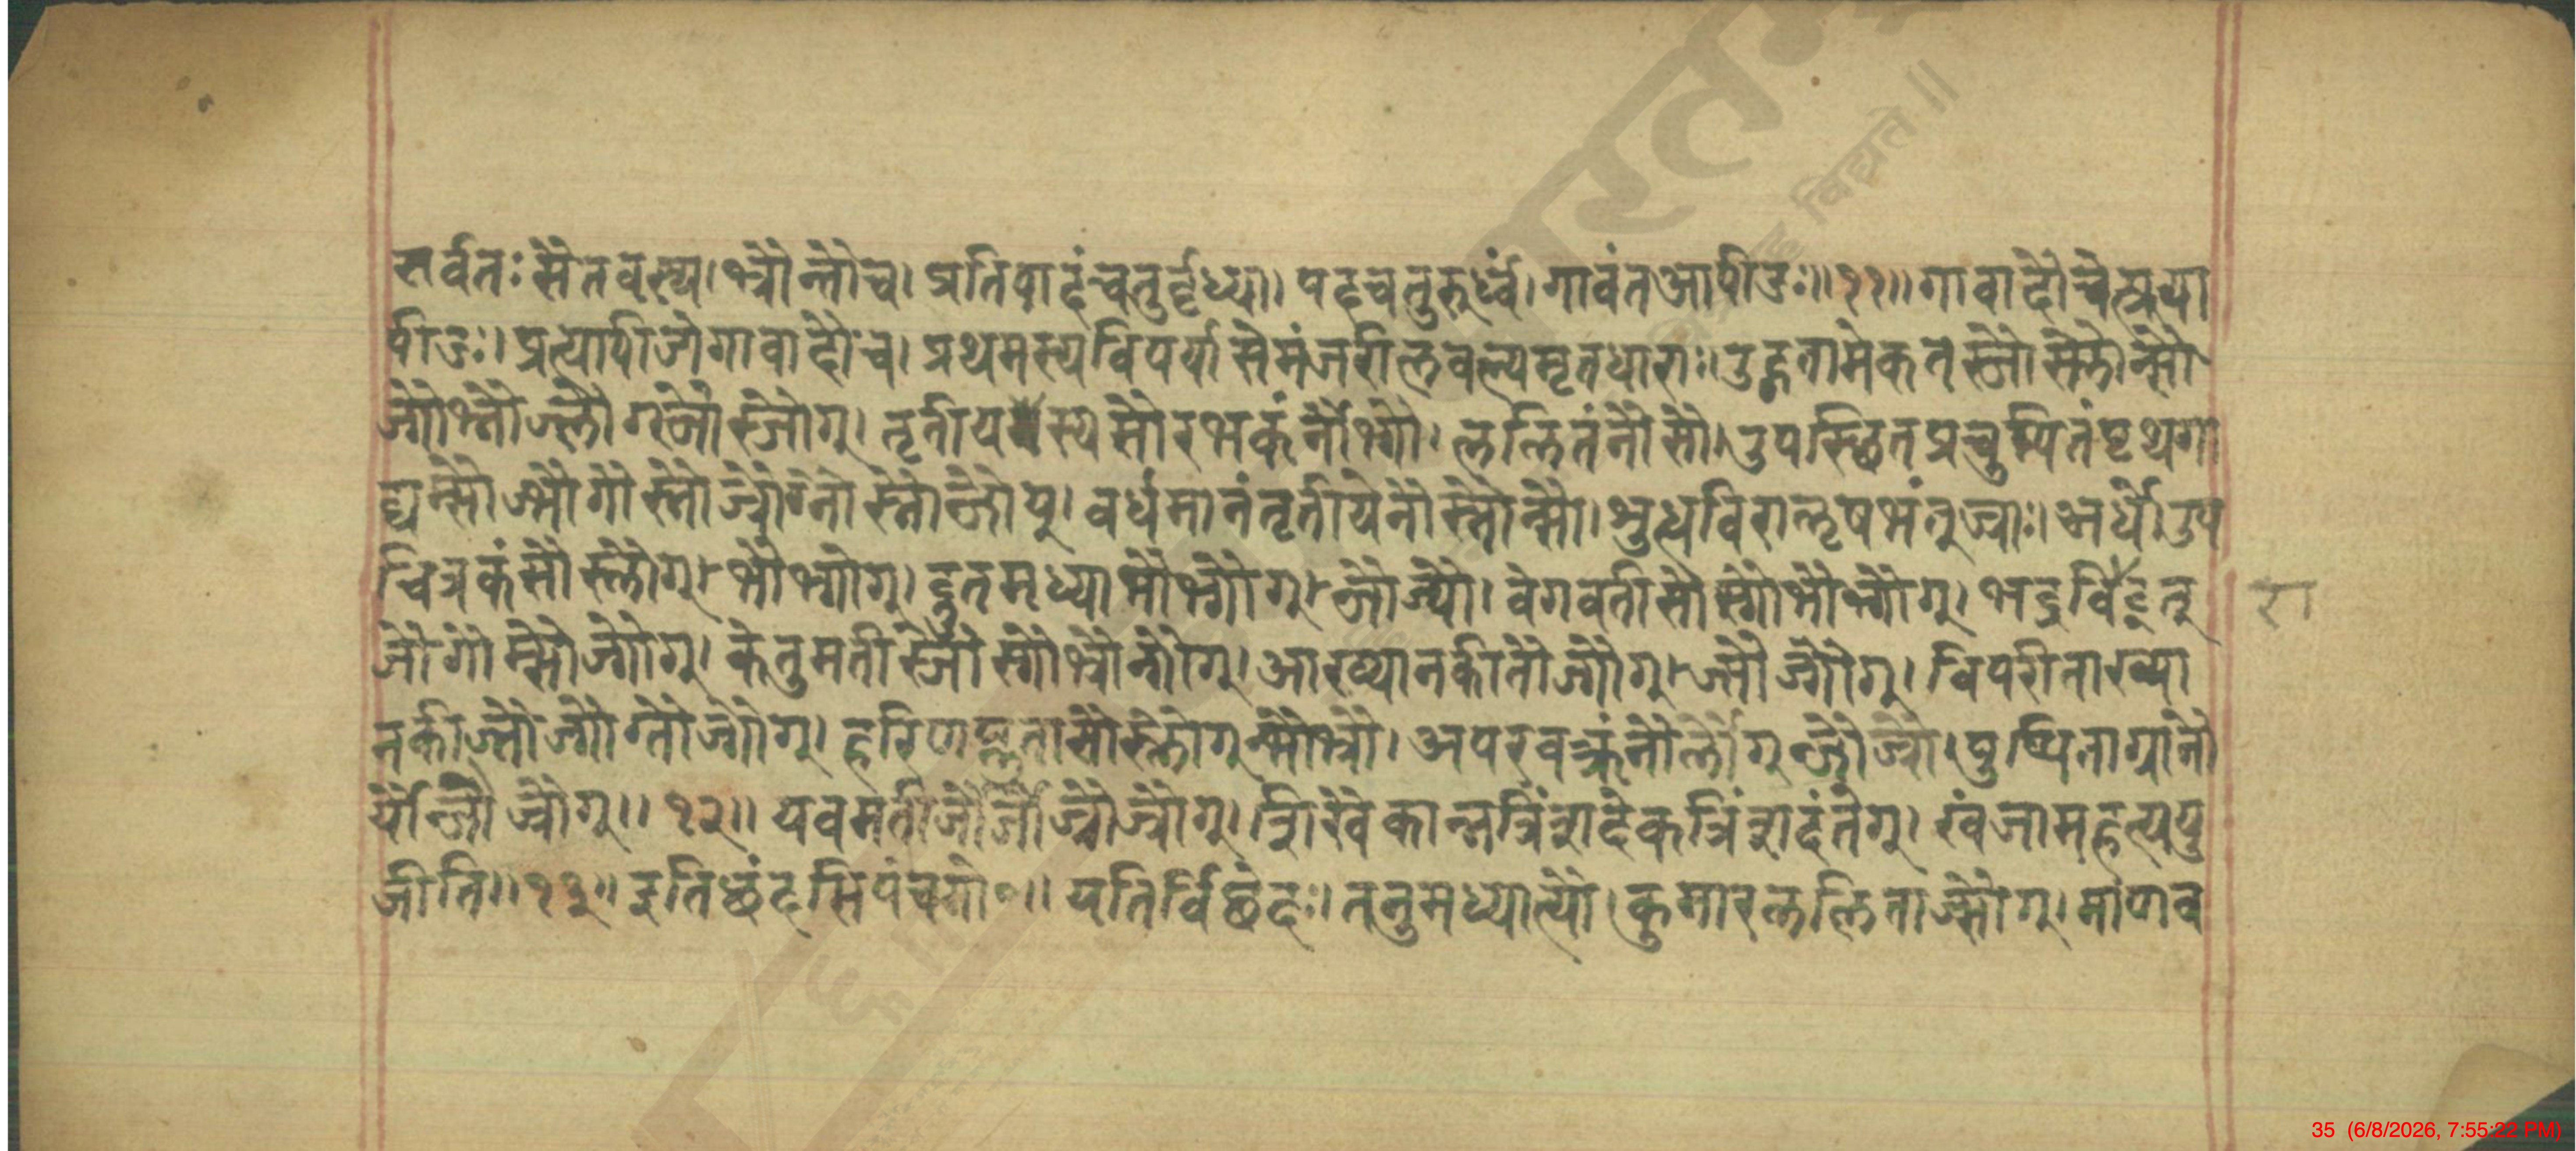 सर्वतः सैतवस्य। भ्रौन्तौच। प्रतिपादंचतुर्वृध्या। पदचतुरूर्ध्वं। गावंतआपीडः॥११॥गावादौचेत्प्रत्या
पीडः। प्रत्यापीडोगावादौच। प्रथमस्यविपर्यासेमंजरीलवल्यमृतधाराः। उद्गतामेकतःस्जौस्लौन्सौ
ज्गौभ्नौज्लौगस्जौस्जौग्। तृतीयस्यसौरभकंर्नौभ्गौ। ललितंनौसौ। उपस्थितप्रचुपितंपृथगा
द्यन्म्सौज्भौगौस्नौज्रौग्नौस्नौन्जौय्। वर्धमानंतृतीयेनौस्नौन्सौ। शुत्धविराळृषभंत्ज्राः। अर्धे। उप
चित्रकंसौस्लौग्। भौभ्गौग्। द्रुतमध्याभौभ्गौग्। न्जौज्यौ। वेगवतीसौस्गौभौभ्गौग्। भद्रविट्त्
रा
जौगौम्सौज्गौग्। केतुमतीस्जौस्गौभ्रौन्गौग्। आख्यानकीतौज्गौग्। ज्तौज्गौग्। विपरीताख्या
नकीज्तौज्गौग्तौज्गौग्। हरिणप्लुतासौस्लौग्न्भौभ्रौ। अपरवक्त्रंनौर्लौग्न्जौज्रौ। पुष्पिताग्रानौ
र्यौन्जौज्रौग्॥१२॥ यवमतीर्जौर्जौज्रौज्रौग्। शिखैकान्नत्रिंशदेकत्रिंशदंतेग्। खंजामहत्ययु
जीति॥१३॥ इतिछंदसिपंचमो०॥ यतिर्विछेदः। तनुमध्यात्यौ। कुमारललिताज्सौग्। माणव